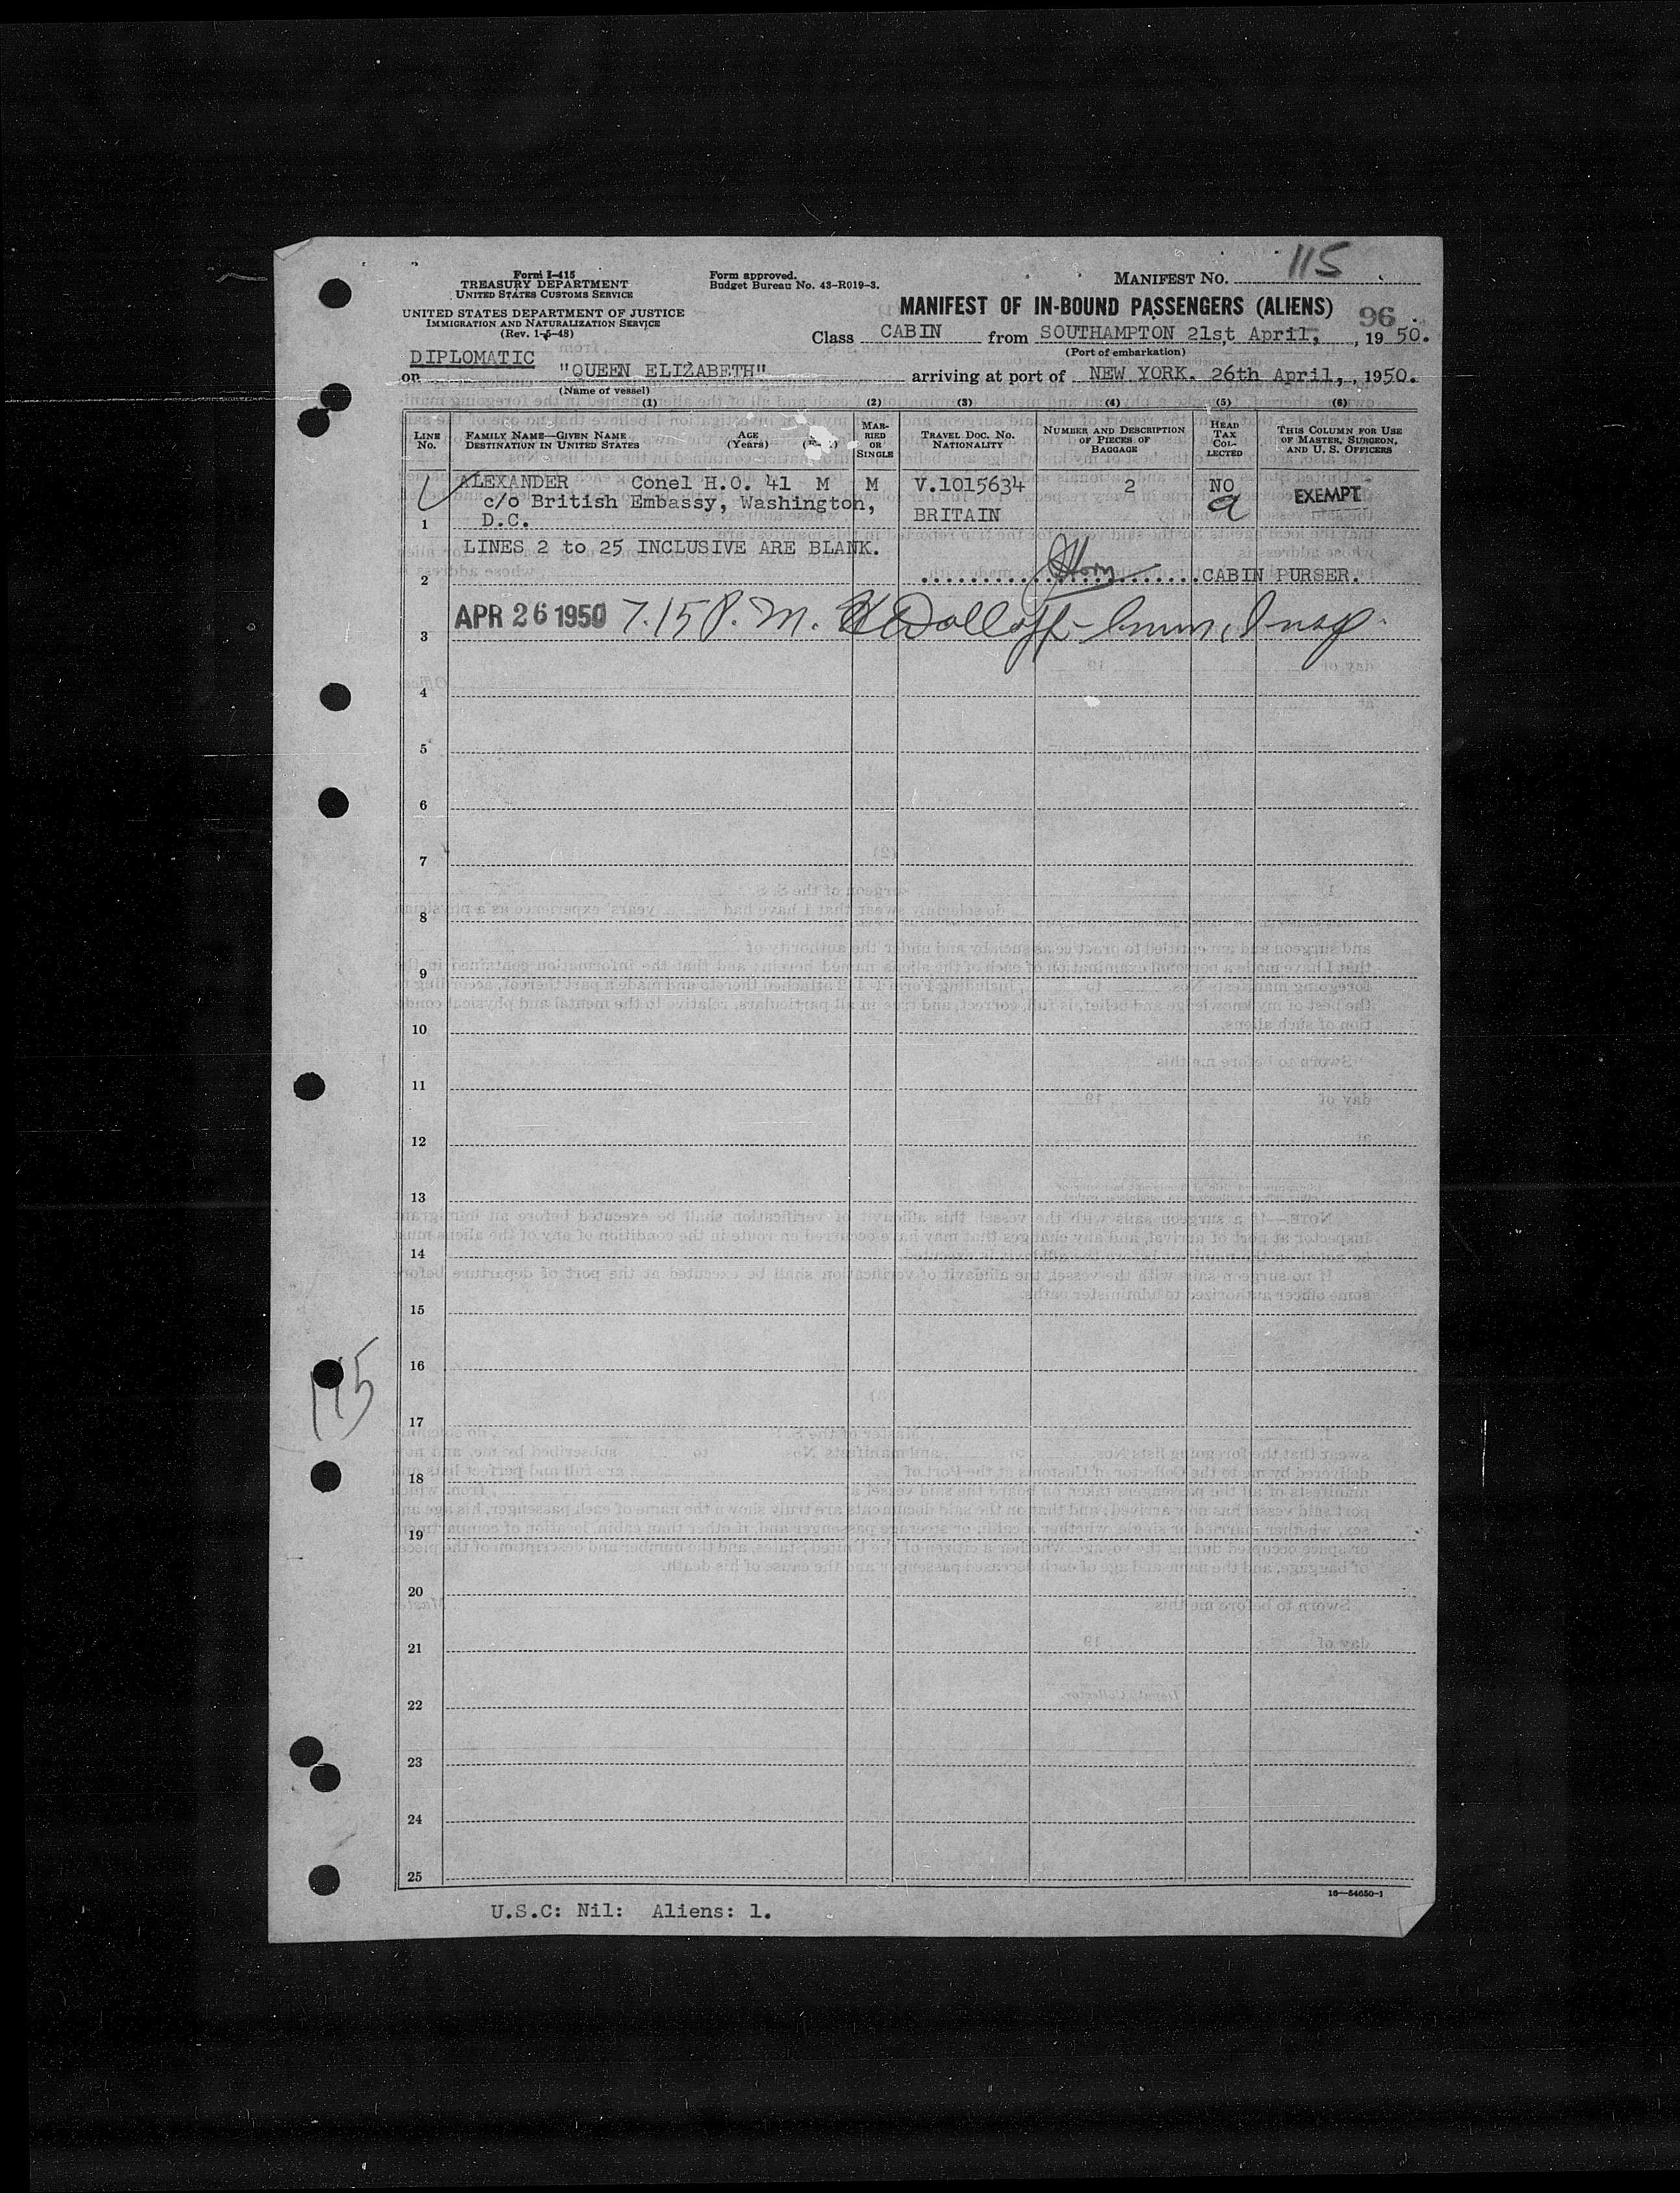 Form I-415
TREASURY DEPARTMENT
UNITED STATES CUSTOMS SERVICE
UNITED STATES DEPARTMENT OF JUSTICE
IMMIGRATION AND NATURALIZATION SERVICE
(Rev. 1-5-48)
Form approved.
Budget Bureau No. 43-R019-3.
MANIFEST NO. 115
MANIFEST OF IN-BOUND PASSENGERS (ALIENS)
96
Class CABIN from SOUTHAMPTON 21st April, , 19 50.
(Port of embarkation)
DIPLOMATIC
on "QUEEN ELIZABETH" arriving at port of NEW YORK. 26th April, , 1950.
(Name of vessel)
(1) (2) (3) (4) (5) (6)
LINE NO.
FAMILY NAME—GIVEN NAME
DESTINATION IN UNITED STATES
AGE
(Years)
MARRIED OR SINGLE
TRAVEL DOC. NO.
NATIONALITY
NUMBER AND DESCRIPTION OF PIECES OF BAGGAGE
HEAD TAX COLLECTED
THIS COLUMN FOR USE OF MASTER, SURGEON, AND U. S. OFFICERS
1
ALEXANDER Conel H.O. 41 M M V.1015634 2 NO EXEMPT
c/o British Embassy, Washington,
D.C. BRITAIN
LINES 2 to 25 INCLUSIVE ARE BLANK.
2 CABIN PURSER.
3 APR 26 1950 7.15 P.M. Dolloff - Imm. Insp.
4
5
6
7
8
9
10
11
12
13
14
15
16
17
18
19
20
21
22
23
24
25
115
16—54650-1
U.S.C: Nil: Aliens: 1.